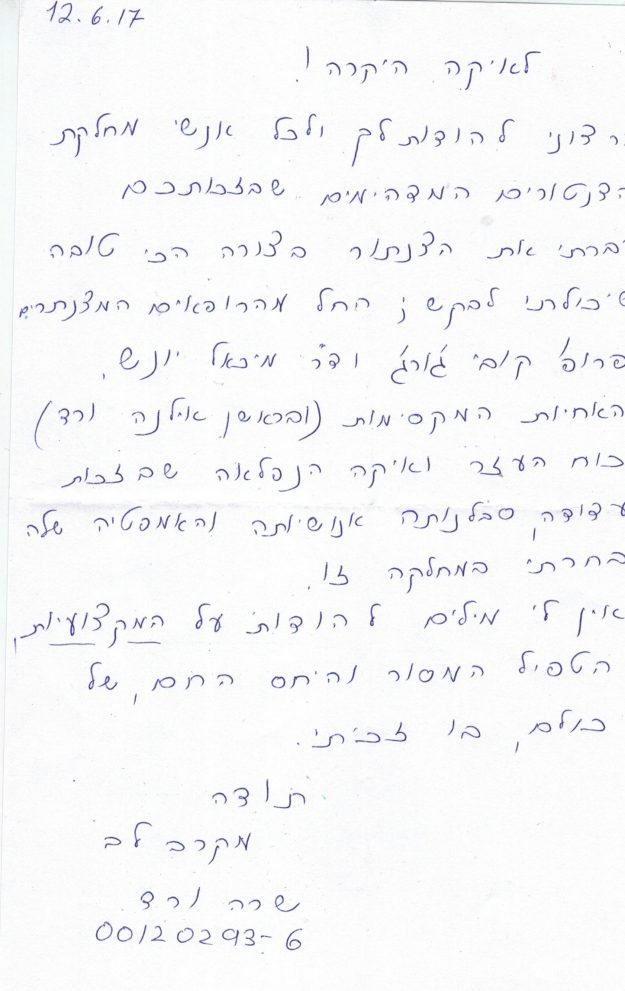 12.6.17
לאיקה היקרה!
רצוני להודות לך ולכל אנשי מחלקת
הצנטורים המדהימים שבזכותכם
עברתי את הצנתור בצורה הכי טובה
שיכולתי לבקש; החל מהרופאים המצנתרים
פרופ' קובי ג'ורג' וד"ר מיכאל יונש,
האחיות המקסימות (ובראשן אילנה ורד)
כוח העזר ואיקה הנפלאה שבזכות
עידודה, סבלנותה אנושיותה והאמפטיה שלה
בחרתי במחלקה זו.
אין לי מילים להודות על המקצועיות,
הטפיל המסור והיחס החם, של
כולם, בו זכיתי.
תודה
מקרב לב
שרה ורד
00120293-6